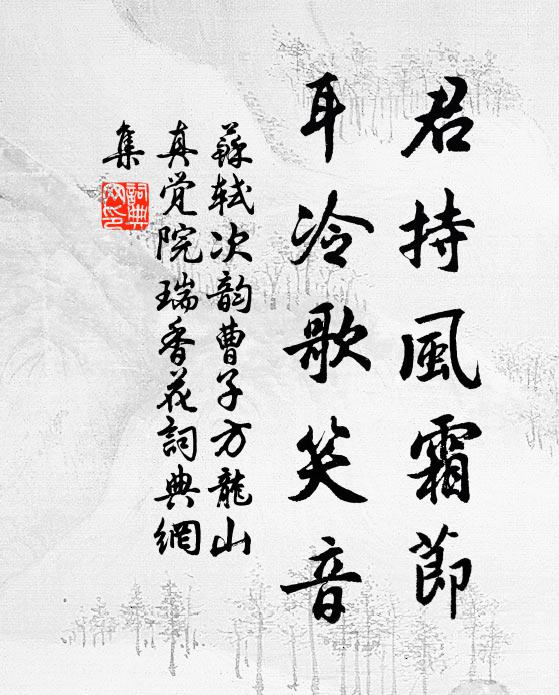 君持風霜節
耳冷歌笑音
蘇轼次韵曹子方龍山
真觉院瑞香花詞典網
集
詞典網印